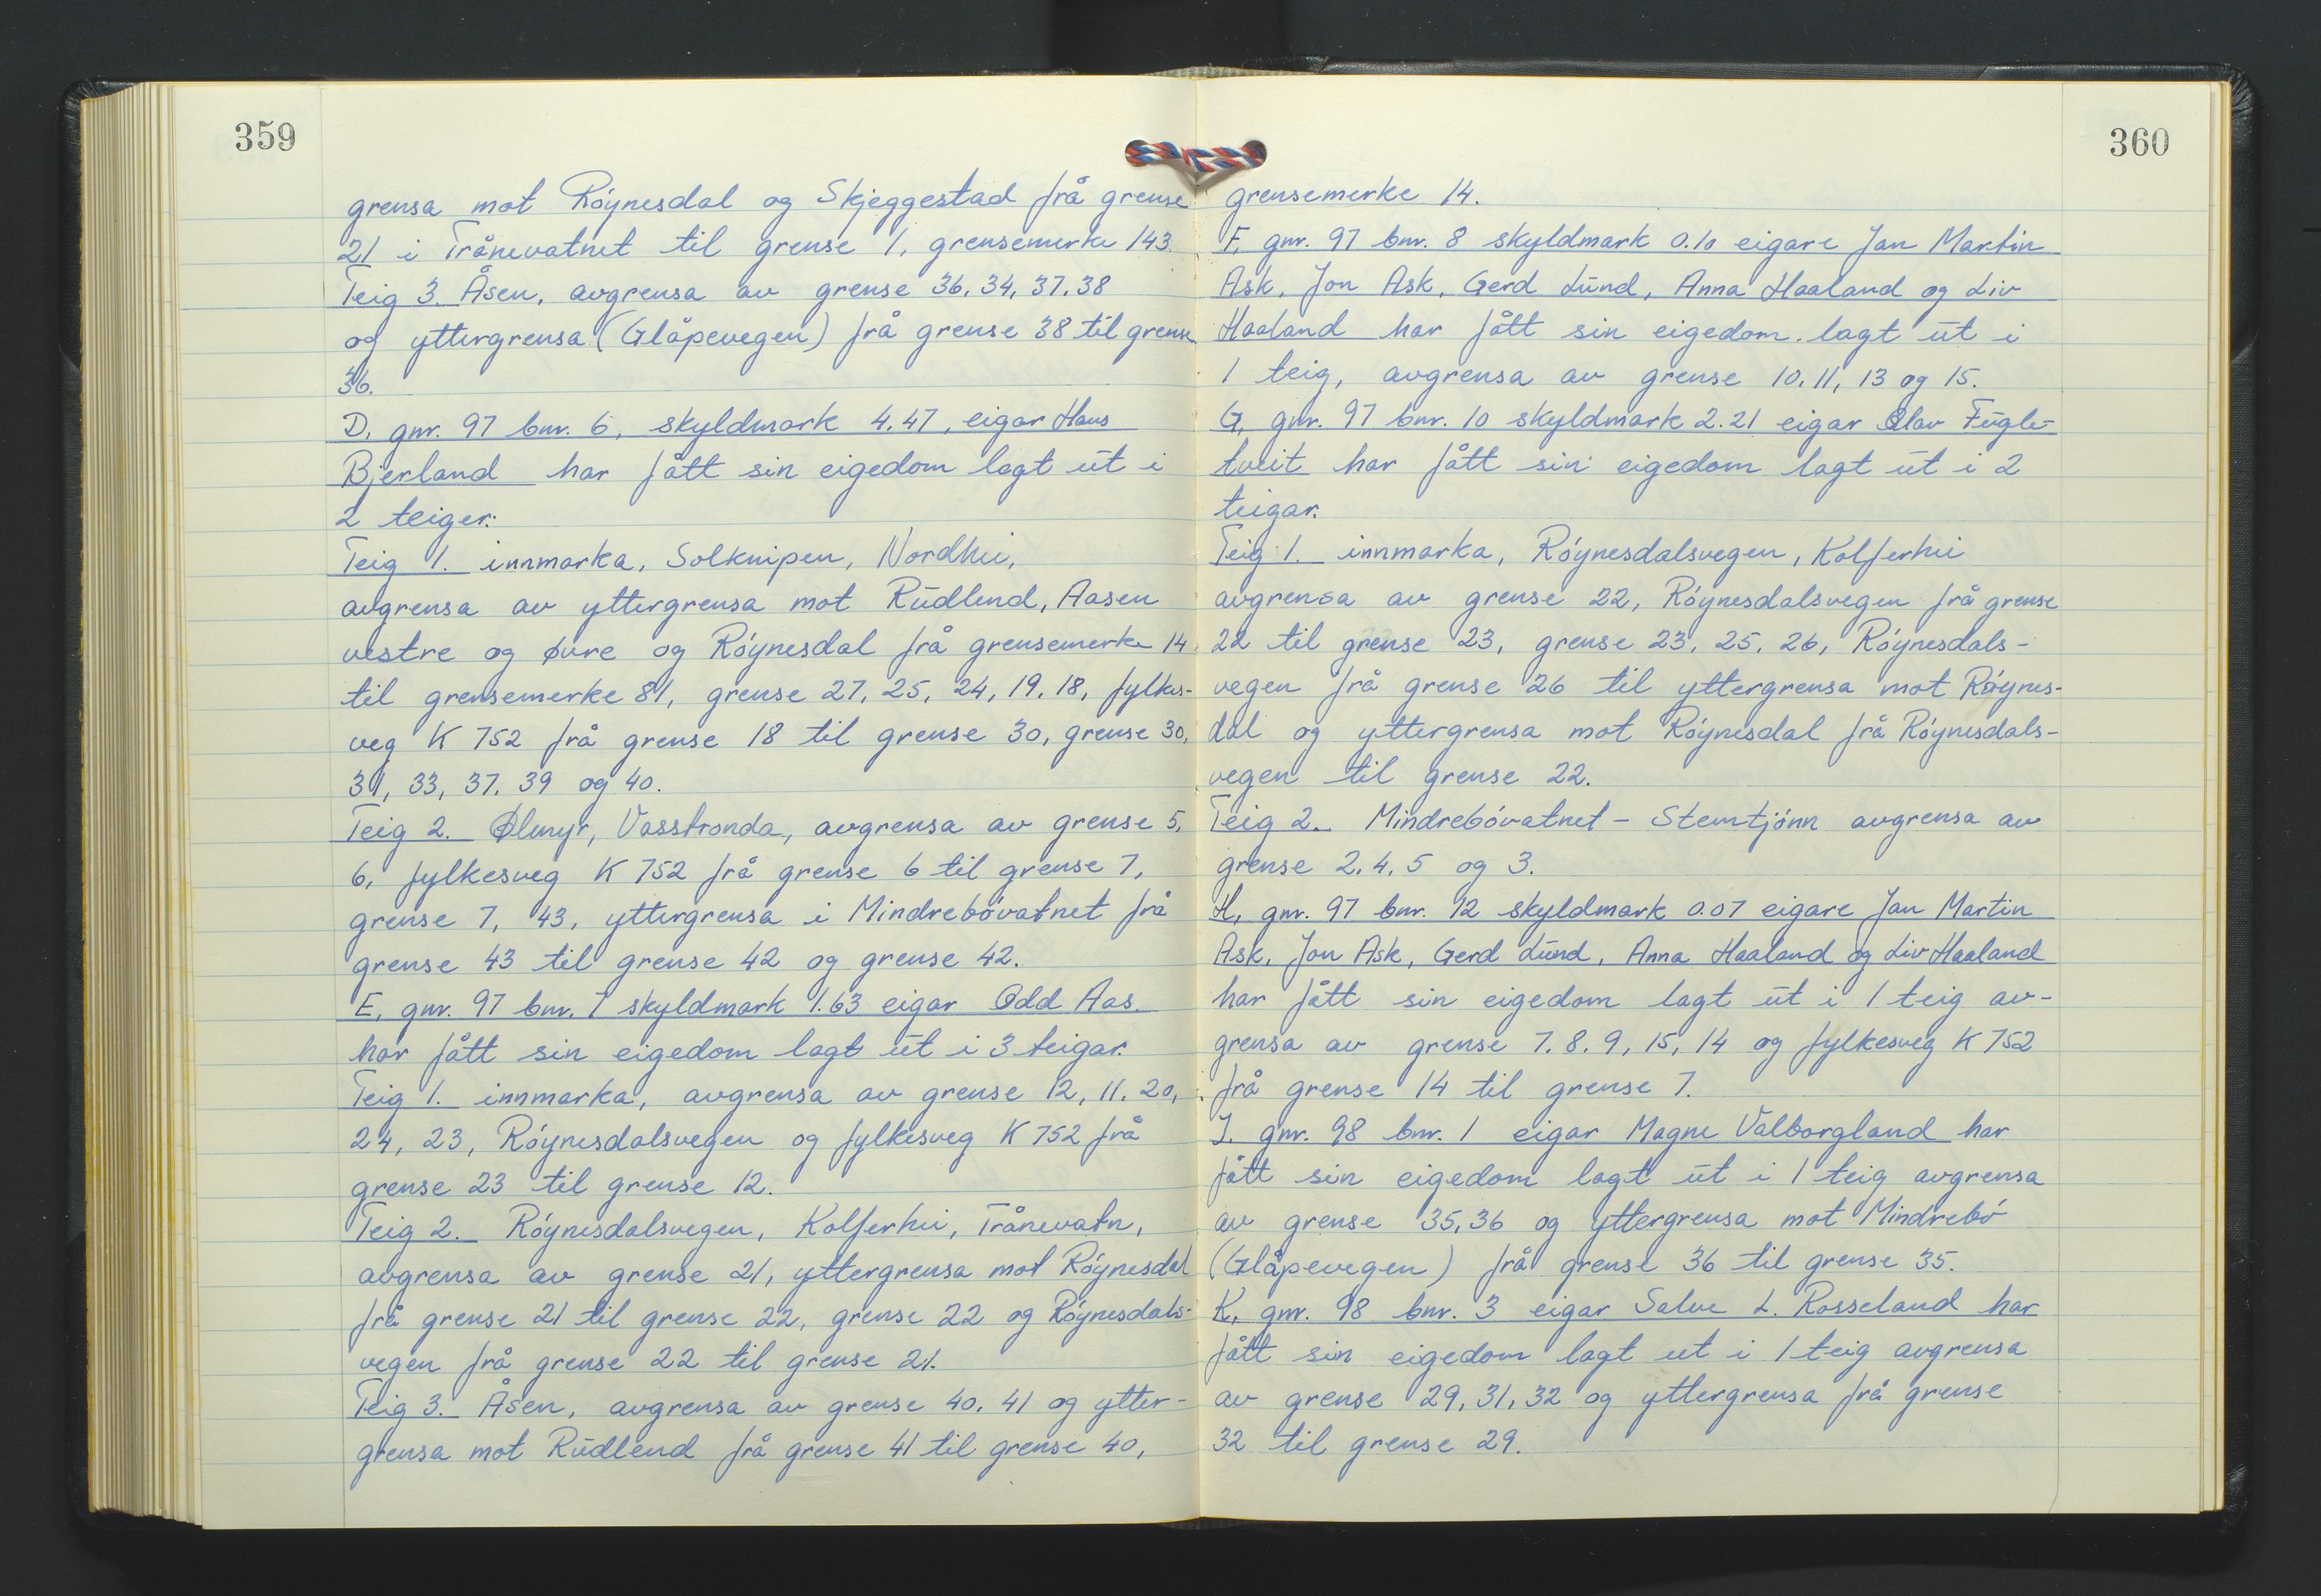 359
grensa mot Röynesdal og Skjeggestad frå grense
21 i Trånevatnet til grense 1, grensemerke 143.
Teig 3. Åsen, avgrensa av grense 36, 34, 37, 38
og yttergrensa (Glåpevegen) frå grense 38 til grense
36.
D, gnr. 97 bnr. 6, skyldmark 4.47, eigar Hans
Bjerland har fått sin eigedom lagt ut i
2 teiger.
Teig 1. innmarka, Solknipen, Nordhei,
avgrensa av yttergrensa mot Rudlend, Aasen
vestre og øvre og Röynesdal frå grensemerke 14
til grensemerke 81, grense 27, 25, 24, 19, 18, fylkes-
veg K 752 frå grense 18 til grense 30, grense 30,
31, 33, 37, 39 og 40.
Teig 2. Ølmyr, Vasstronda, avgrensa av grense 5,
6, fylkesveg K 752 frå grense 6 til grense 7,
grense 7, 43, yttergrensa i Mindrebövatnet frå
grense 43 til grense 42 og grense 42.
E, gnr. 97 bnr. 7 skyldmark 1.63 eigar Odd Aas.
har fått sin eigedom lagt ut i 3 teigar.
Teig 1. innmarka, avgrensa av grense 12, 11, 20,
24, 23, Röynesdalsvegen og fylkesveg K 752 frå
grense 23 til grense 12.
Teig 2. Röynesdalsvegen, Kolferhei, Trånevatn,
avgrensa av grense 21, yttergrensa mot Röynesdal
frå grense 21 til grense 22, grense 22 og Röynesdals-
vegen frå grense 22 til grense 21.
Teig 3. Åsen, avgrensa av grense 40, 41 og ytter-
grensa mot Rudlend frå grense 41 til grense 40,
360
grensemerke 14.
F, gnr. 97 bnr. 8 skyldmark 0.10 eigare Jan Martin
Ask, Jon Ask, Gerd Lund, Anna Haaland og Liv
Haaland har fått sin eigedom lagt ut i
1 teig, avgrensa av grense 10, 11, 13 og 15.
G, gnr. 97 bnr. 10 skyldmark 2.21 eigar Olav Fugle-
tveit har fått sin eigedom lagt ut i 2
teigar.
Teig 1. innmarka, Röynesdalsvegen, Kolferhei
avgrensa av grense 22, Röynesdalsvegen frå grense
22 til grense 23, grense 23, 25, 26, Röynesdals-
vegen frå grense 26 til yttergrensa mot Röynes-
dal og yttergrensa mot Röynesdal frå Röynesdals-
vegen til grense 22.
Teig 2. Mindrebövatnet - Stemtjönn avgrensa av
grense 2, 4, 5 og 3.
H, gnr. 97 bnr. 12 skyldmark 0.07 eigare Jan Martin
Ask, Jon Ask, Gerd Lund, Anna Haaland og Liv Haaland
har fått sin eigedom lagt ut i 1 teig av-
grensa av grense 7, 8, 9, 15, 14 og fylkesveg K 752
frå grense 14 til grense 7.
J. gnr. 98 bnr. 1 eigar Magne Valborgland har
fått sin eigedom lagt ut i 1 teig avgrensa
av grense 35, 36 og yttergrensa mot Mindrebö
(Glåpevegen) frå grense 36 til grense 35.
K, gnr. 98 bnr. 3 eigar Salve L. Rosseland har
fått sin eigedom lagt ut i 1 teig avgrensa
av grense 29, 31, 32 og yttergrensa frå grense
32 til grense 29.